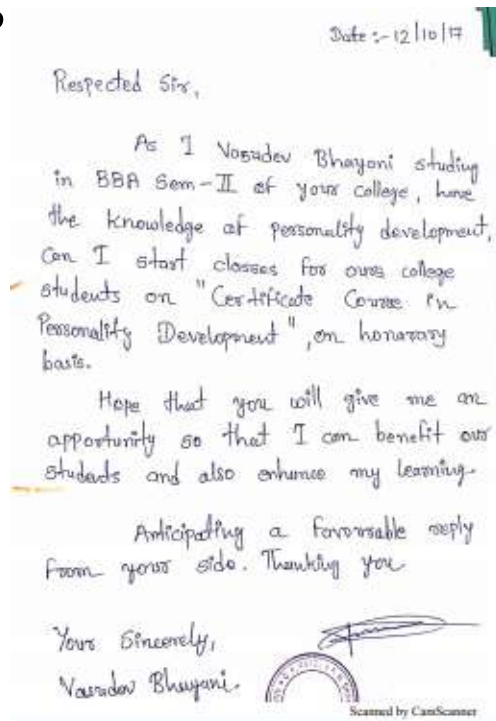 Date :- 12/10/17
Respected Sir,
As I Vasudev Bhayani studing
in BBA Sem-II of your college, have
the knowledge of personality development,
Can I start classes for ours college
students on "Certificate Course in
Personality Development", on honorary
basis.
Hope that you will give me an
opportunity so that I can benefit our
students and also enhance my learning.
Anticipating a favourable reply
from your side. Thanking you
Your Sincerely,
Vasudev Bhayani.
Scanned by CamScanner